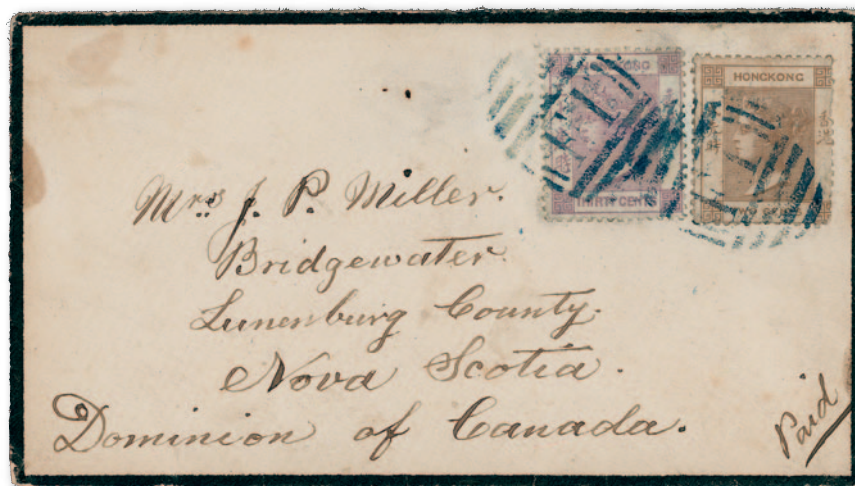 HONGKONG
THIRTY CENTS
Mrs. J. P. Miller.
Bridgewater.
Lunenburg County.
Nova Scotia.
Dominion of Canada.
Paid